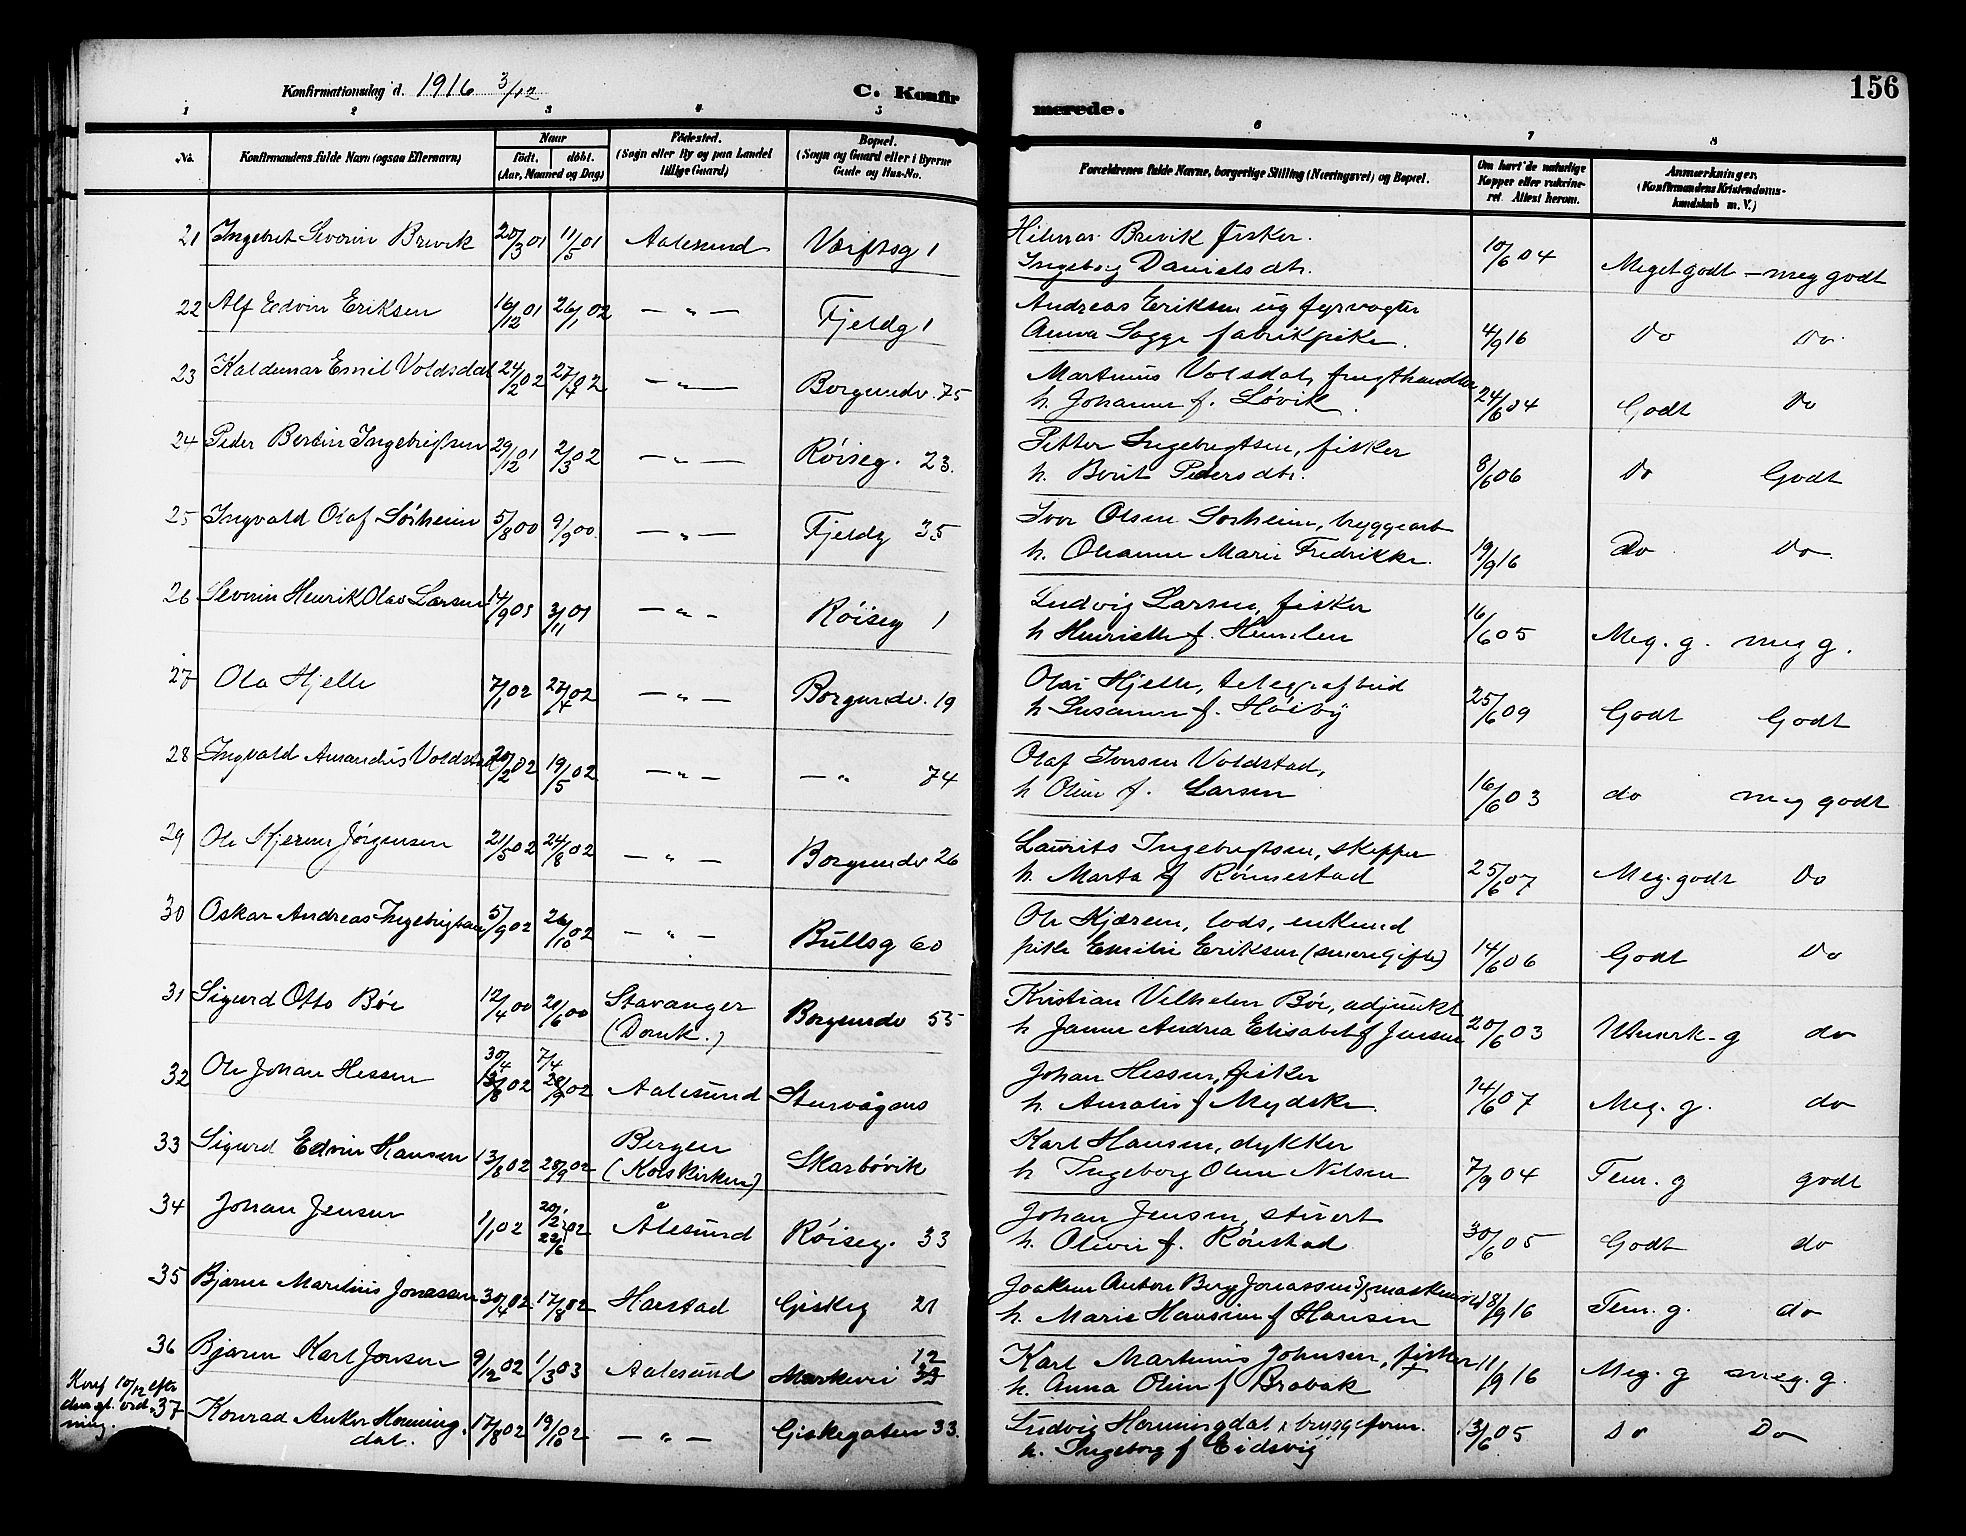 Konfirmationsdag d. 1916 3/12
C. Konfirmerede.
156
1 2 3 4 5 6 7 8
No. Konfirmandens fulde Navn (ogsaa Efternavn) Naar født. døbt. (Aar, Maaned og Dag) Fødested. (Sogn eller By og paa Landet tillige Gaard) Bopæl. (Sogn og Gaard eller i Byerne Gade og Hus-No. Forældrenes fulde Navne, borgerlige Stilling (Næringsvei) og Bopæl. Om havt de naturlige Kopper eller vakcineret. Attest herom. Anmærkninger. (Konfirmandens Kristendomskundskab m. V.)
21 Ingebret Severin Brevik 20/3 01 11/5 01 Aalesund Værftsg 1 Hilmar Brevik fisker. 10/6 04 Meget godt - meg godt
Ingeborg Danielsdtr.
22 Alf Edvin Eriksen 16/12 01 26/1 02 — " — Fjeldg 1 Andreas Eriksen ug fyrvogter 4/9 16 Do Do
Anna Sagge fabrikpike.
23 Kaldemar Emil Voldsdal 24/2 02 27/4 02 — " — Borgundv. 75 Martinus Volsdal, frugthandler 24/6 04 Godt Do
h. Johanne f. Løvik.
24 Peder Bertin Ingebrigtsen 29/12 01 2/3 02 — " — Røiseg. 23. Petter Ingebrigtsen, fisker 8/6 06 Do Godt
h. Berit Pedersdtr.
25 Ingvald Olaf Sørheim 5/8 00 9/9 00. — " — Fjeldg 35 Ivar Olsen Sørheim, bryggearb 19/9 16 Do Do.
h. Olianne Marie Fredrikke.
26 Severin Henrik Olav Larsen 14/9 01 3/11 01 — " - Røiseg 1 Ludvig Larsen, fisker 16/6 05 Meg. g. meg g.
h Henriette f. Humlen
27 Ola Hjelle 7/1 02 27/4 02 — " — Borgundv. 19 Olai Hjelle, telegrafbud 25/6 09 Godt Godt
h Susanne f. Høiby
28 Ingvald Amandus Voldstad 20/2 02 19/5 02 — " — — " 74 Olaf Ivarsen Voldstad, 16/6 03 do meg godt
h Oline f. Larsen
29 Ole Kjeren Jørgensen 21/5 02 24/8 02 — " — Borgundv 26 Laurits Ingebrigtsen, skipper 25/6 07 Meg. godt Do
h. Marta f Rønnestad
30 Oskar Andreas Ingebrigtsen 5/9 02 26/10 02 — " — Bullsg 60 Ole Kjærem, lods, enkemd 14/6 06 Godt Do
pike Emilie Eriksen (senere gifte)
31 Sigurd Otto Bøe 12/4 00 21/6 00 Stavanger Borgundv 55 Kristian Vilhelm Bøe, adjunkt 20/6 03 Utmerk. g do
(Domk.) h Janna Andrea Elisabet f Jensen
32 Ole Johan Hessen 30/4 02 7/4 02 Aalesund Stenvågnes Johan Hessen, fisker 14/6 07 Meg. g. do
h. Amalie f Mydske.
33 Sigurd Edvin Hansen 13/8 02 28/9 02 Bergen Skarbøvik Karl Hansen, dykker 7/9 04 Tem. g godt
(Korskirken) h Ingeborg Oline Nilsen
34 Johan Jensen 1/1 02 20/2 02 22/6 Ålesund Røiseg. 33 Johan Jensen, stuert 30/6 05 Godt do
h. Olivie f. Rønstad
35 Bjarne Marelius Jonassen 30/4 02 17/8 02 Harstad Giskeg 21 Joakim Anton Berg Jonassen 18/9 16 Tem. g. do
h. Marie Hansine f Hansen
36 Bjarne Karl Jonsen 9/12 02 1/3 03 Aalesund Markvei 12 Karl Martinus Johnsen, fisker 11/9 16 Meg. g meg. g.
h. Anna Oline f Brobak
Konf 10/12 efter
37 Konrad Anker Henning- 17/8 02 19/10 02 — " — Giskegaten 33. Ludvig Henningdal, bryggeform. 13/6 05 Do Do
dal. h. Ingeborg f Eidsvig